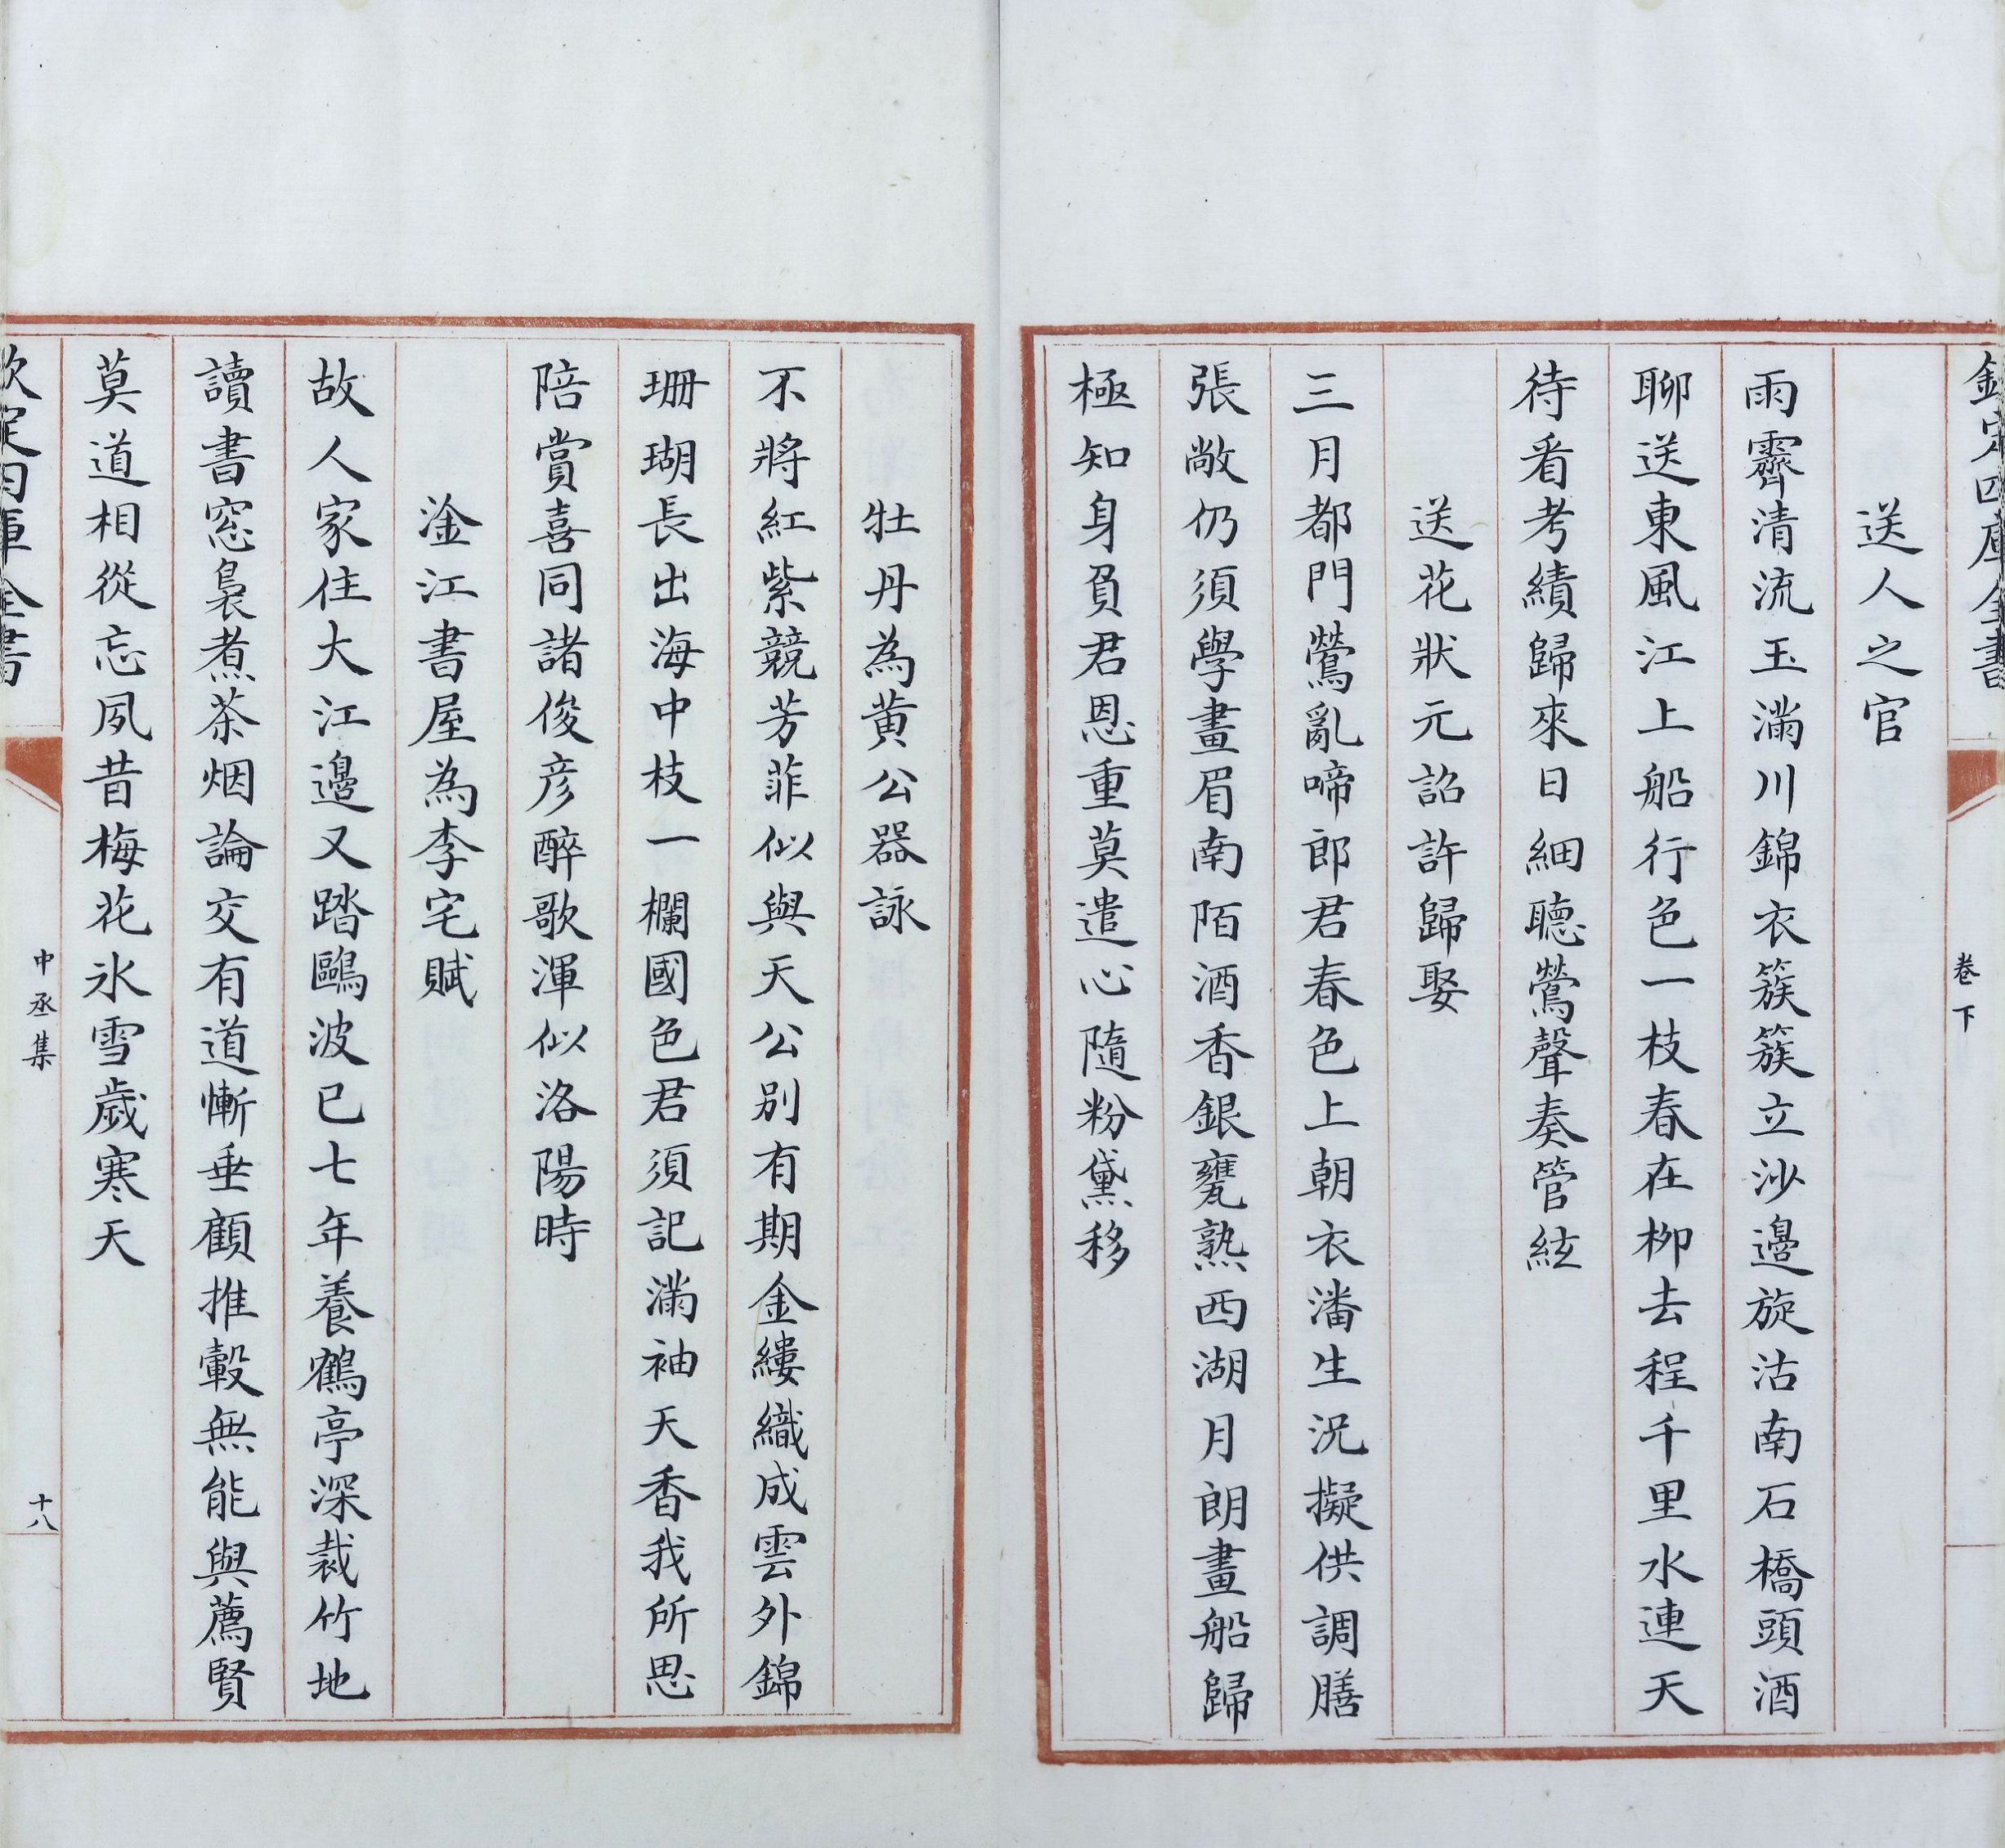 欽定四庫全書
卷下
送人之官
雨霽清流玉滿川錦衣簇簇立沙邊旋沽南石橋頭酒
聊送東風江上船行色一枝春在柳去程千里水連天
待看考績歸來日細聽鶯聲奏管絃
送花狀元詔許歸娶
三月都門鶯亂啼郎君春色上朝衣潘生況擬供調膳
張敞仍須學畫眉南陌酒香銀甕熟西湖月朗畫船歸
極知身負君恩重莫遣心隨粉黛移
牡丹為黄公器詠
不將紅紫競芳菲似與天公别有期金縷織成雲外錦
珊瑚長出海中枝一欄國色君須記滿袖天香我所思
陪賞喜同諸俊彦醉歌渾似洛陽時
淦江書屋為李宅賦
故人家住大江邉又踏鷗波已七年養鶴亭深裁竹地
讀書窓裊煮茶烟論交有道慚垂顧推轂無能與薦賢
莫道相從忘夙昔梅花氷雪歲寒天
欽定四庫全書
中丞集
十八